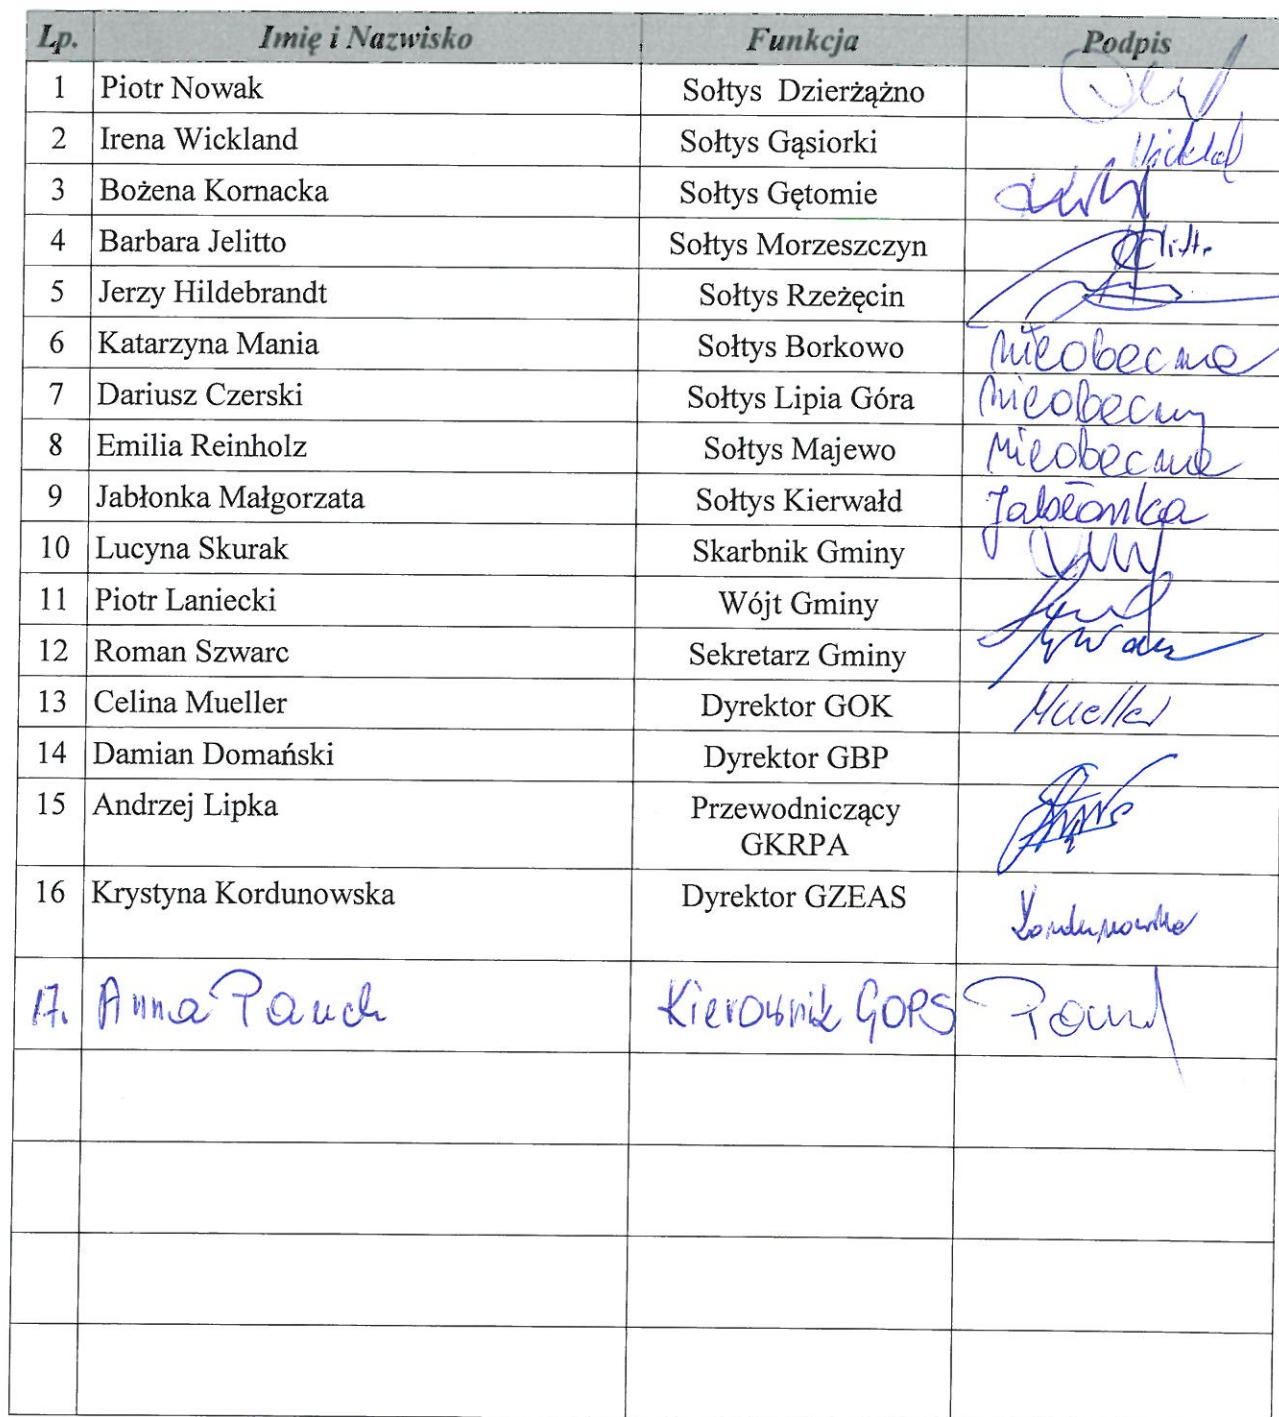 Lp. Imię i Nazwisko Funkcja Podpis
1 Piotr Nowak Sołtys Dzierżążno
2 Irena Wickland Sołtys Gąsiorki
3 Bożena Kornacka Sołtys Gętomie
4 Barbara Jelitto Sołtys Morzeszczyn
5 Jerzy Hildebrandt Sołtys Rzeżęcin
6 Katarzyna Mania Sołtys Borkowo nieobecna
7 Dariusz Czerski Sołtys Lipia Góra nieobecny
8 Emilia Reinholz Sołtys Majewo nieobecna
9 Jabłonka Małgorzata Sołtys Kierwałd Jabłonka
10 Lucyna Skurak Skarbnik Gminy
11 Piotr Laniecki Wójt Gminy
12 Roman Szwarc Sekretarz Gminy
13 Celina Mueller Dyrektor GOK Mueller
14 Damian Domański Dyrektor GBP
15 Andrzej Lipka Przewodniczący
GKRPA
16 Krystyna Kordunowska Dyrektor GZEAS Kordunowska
17. Anna Pauch Kierownik GOPS